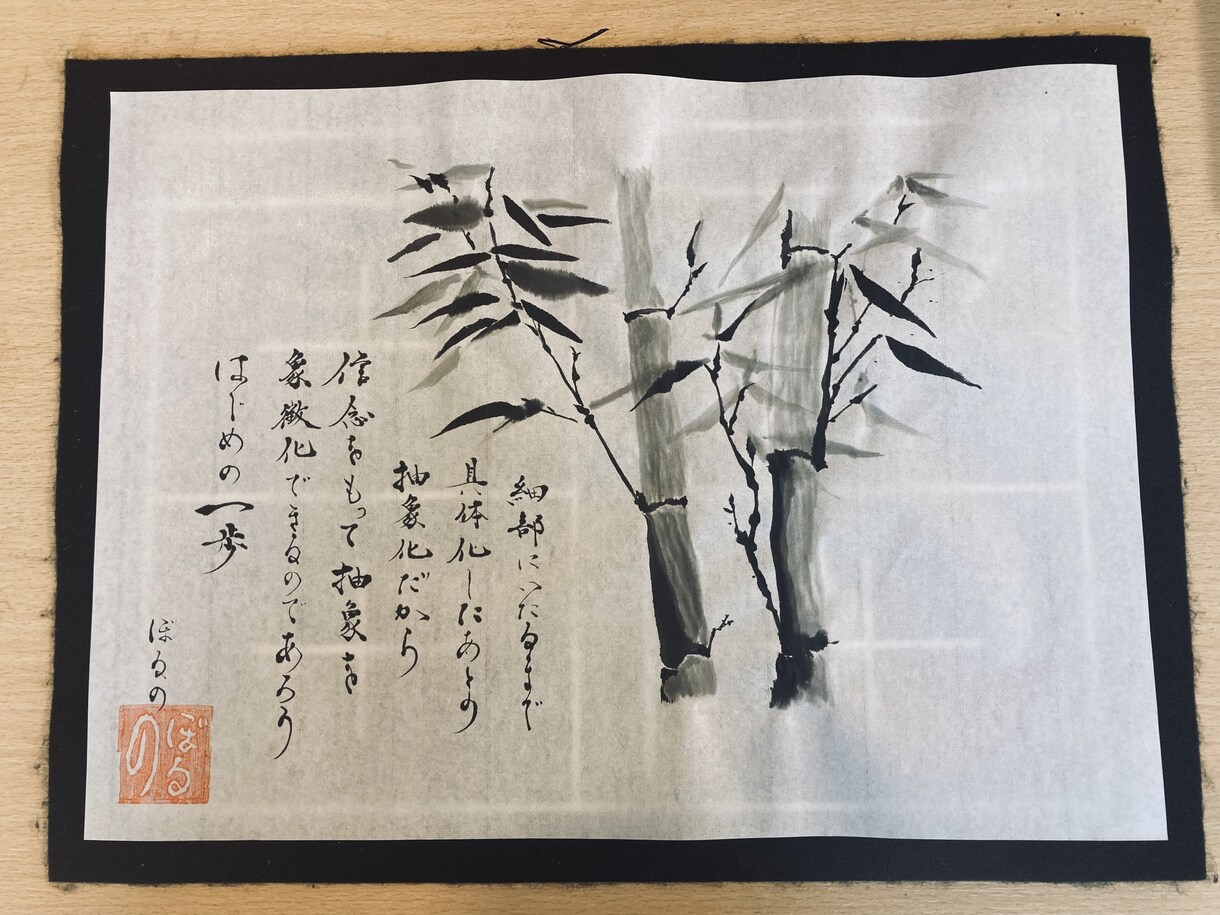 細部にいたるまで
具体化したあとの
抽象化だから
信念をもって抽象を
象徴化できるのであろう
はじめの一歩
ぼるの
ぼる
の